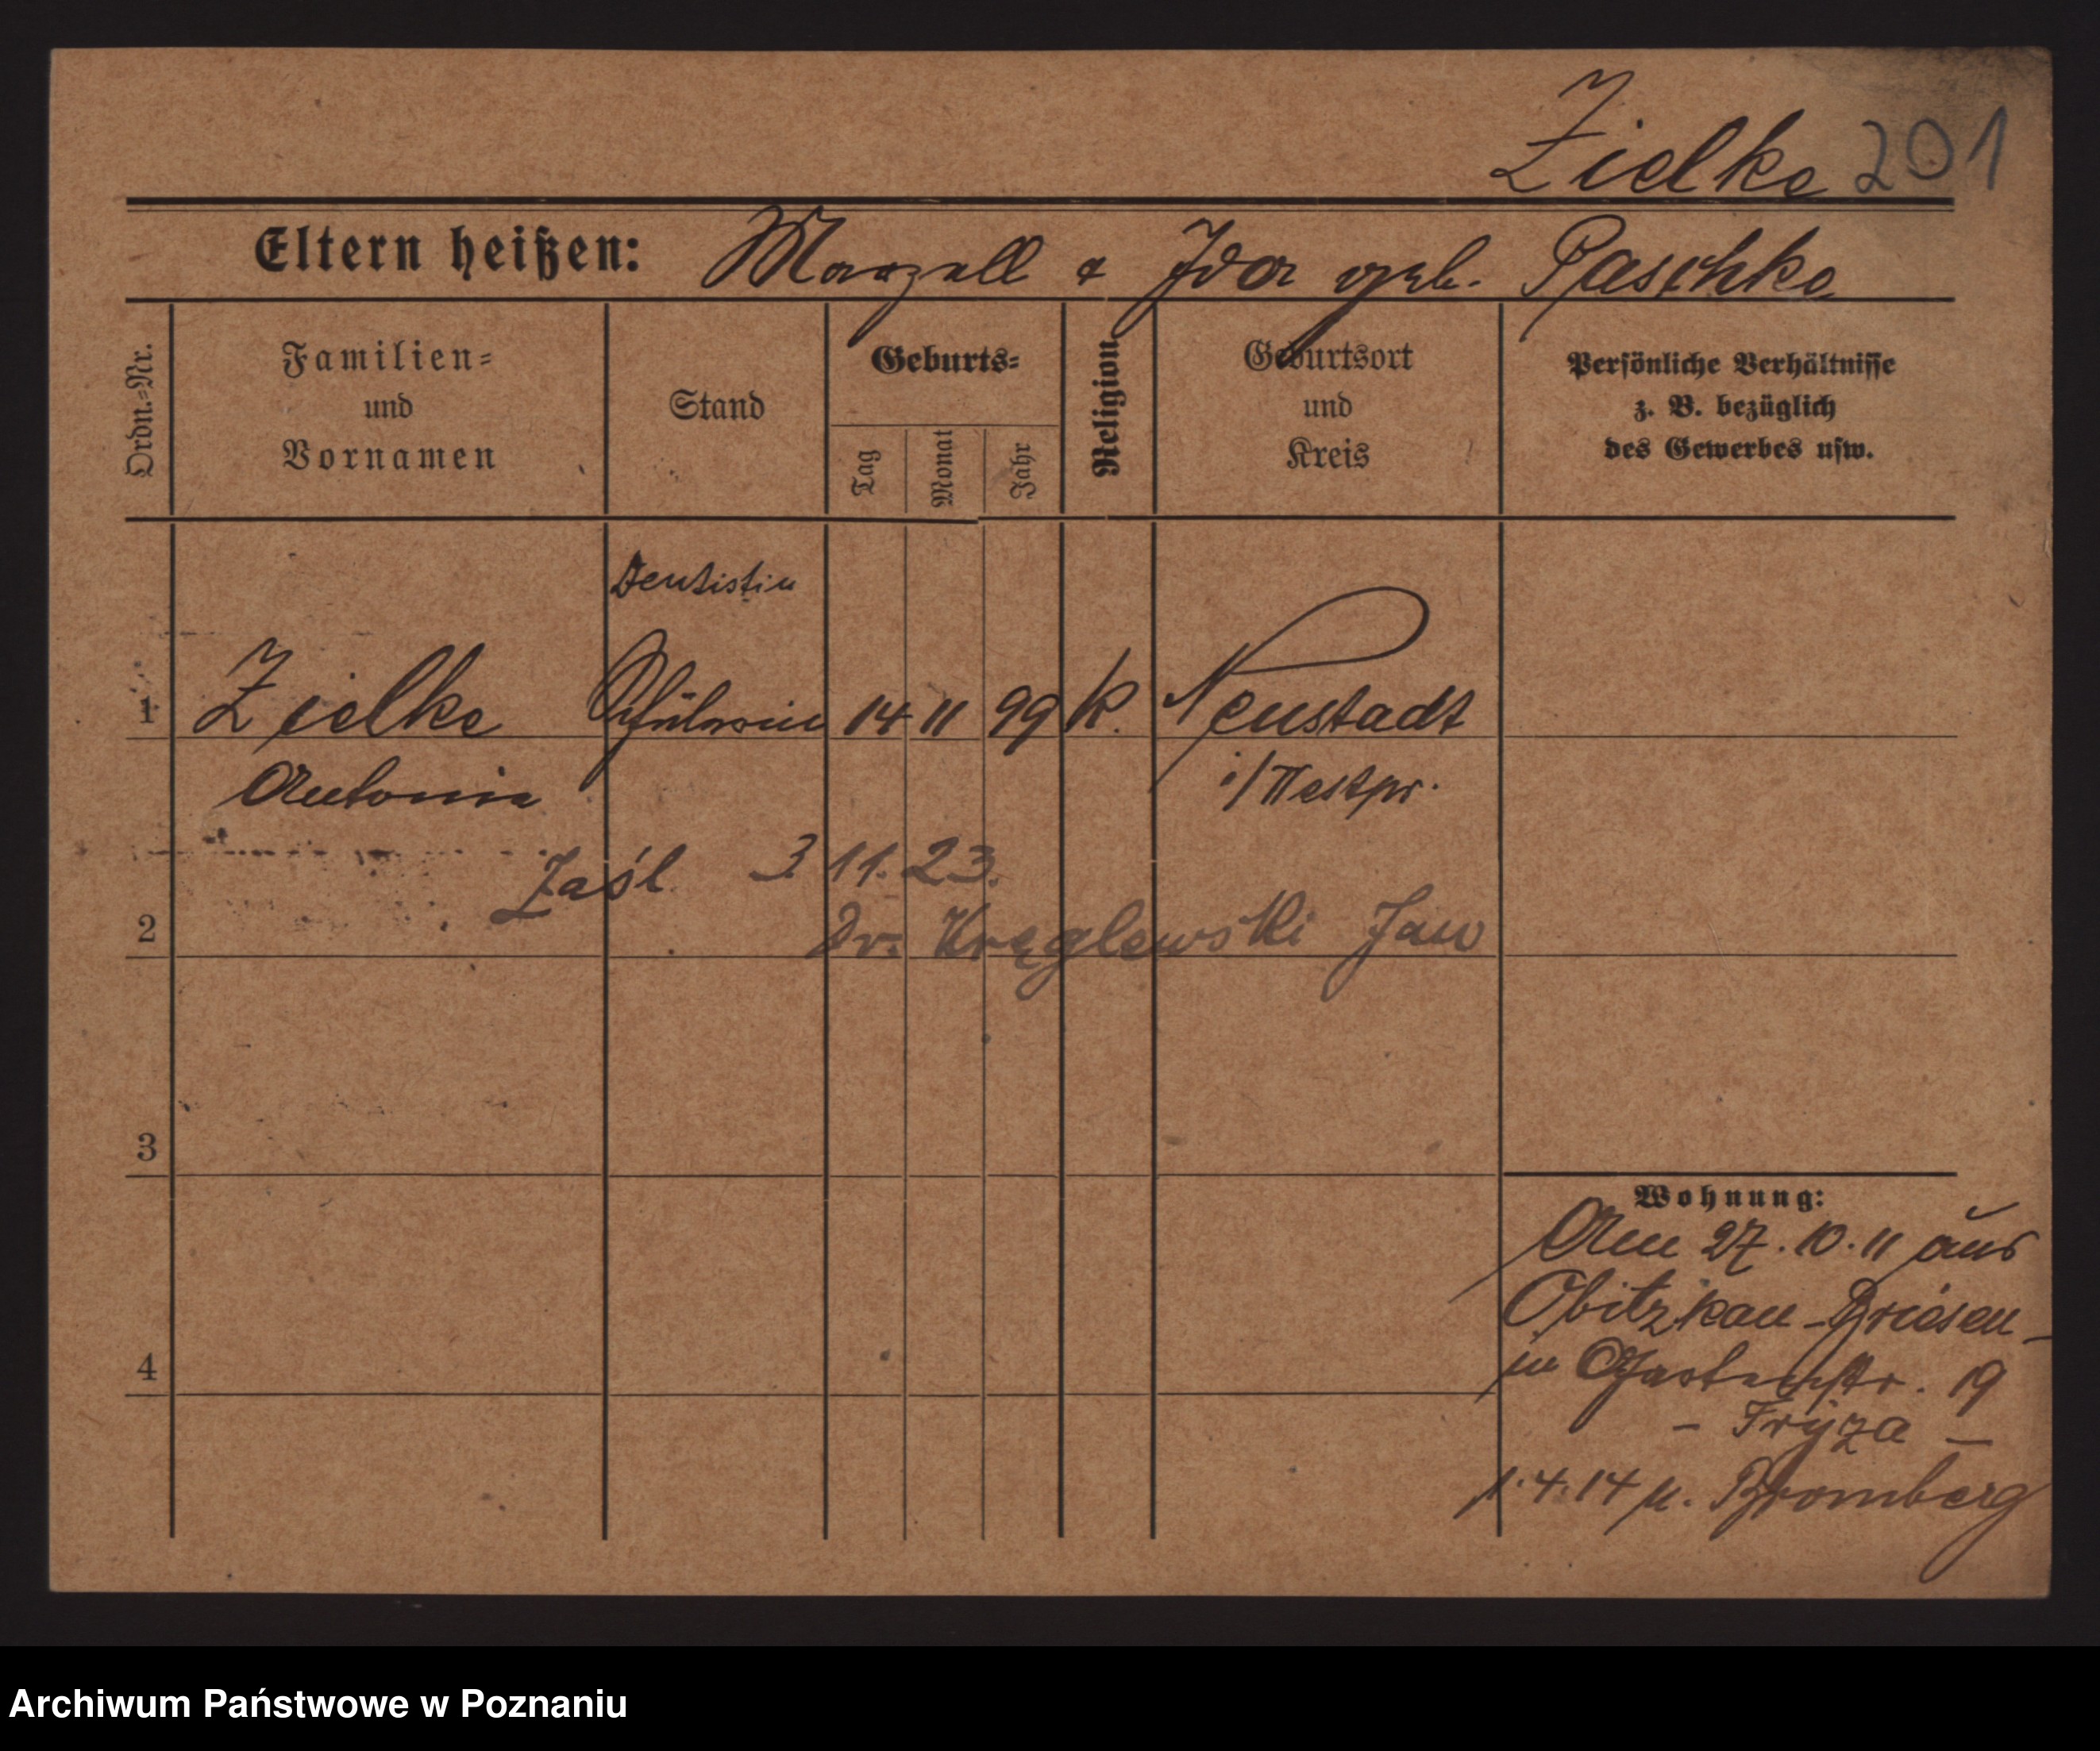 Zielke 201
Eltern heißen: Marzell & Ida geb. Paschke
Ordn.=Nr.
Familien=
und
Vornamen
Stand
Geburts=
Tag
Monat
Jahr
Religion
Geburtsort
und
Kreis
Persönliche Verhältnisse
z. B. bezüglich
des Gewerbes usw.
Dentistin
1 Zielke Schülerin 14 11 99 k. Neustadt
Antonie i/Westpr.
Zaśl 3 11. 23.
2 Dr. Kręglewski Jan
3
Wohnung:
Am 27. 10. 11 aus
Obitzkau - Briesen -
in Gartenstr. 19
4
- Fryza -
1.4.14 n. Bromberg
Archiwum Państwowe w Poznaniu